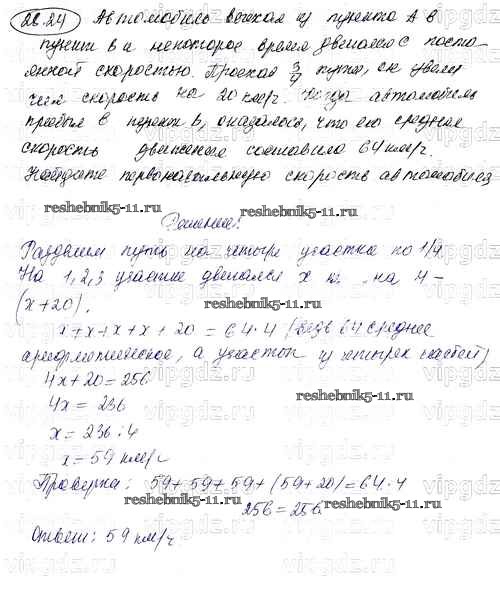 28.24 Автомобиль выехал из пункта А в
пункт В и некоторое время двигался с посто-
янной скоростью. Проехав 3/4 пути, он увели-
чил скорость на 20 км/ч. Когда автомобиль
прибыл в пункт В, оказалось, что его средняя
скорость движения составила 64 км/ч.
Найдите первоначальную скорость автомобиля
reshebnik5-11.ru reshebnik5-11.ru
Решение:
Разделим путь на четыре участка по 1/4.
На 1,2,3 участке двигался x км на 4 -
(x+20).
reshebnik5-11.ru
x+x+x+x+20 = 64·4 (ведь 64 среднее
арифметическое, а участок из четырех частей)
4x+20=256
4x = 236
reshebnik5-11.ru
x = 236:4
x = 59 км/ч
Проверка: 59+59+59+(59+20)=64·4
256=256
reshebnik5-11.ru
Ответ: 59 км/ч